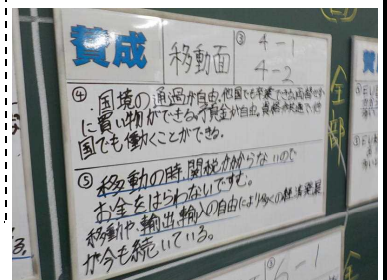 賛成
移動面
③ 4-1
4-2
④ 国境の通過が自由。他国でも卒業できる。両替せず
に買い物ができる。預金が自由。資格が共通で他
国でも働くことができる。
⑤ 移動の時、関税がかからないので
お金をはらわないですむ。
移動や、輸出、輸入の自由により多くの経済発展
が今も続いている。
全部